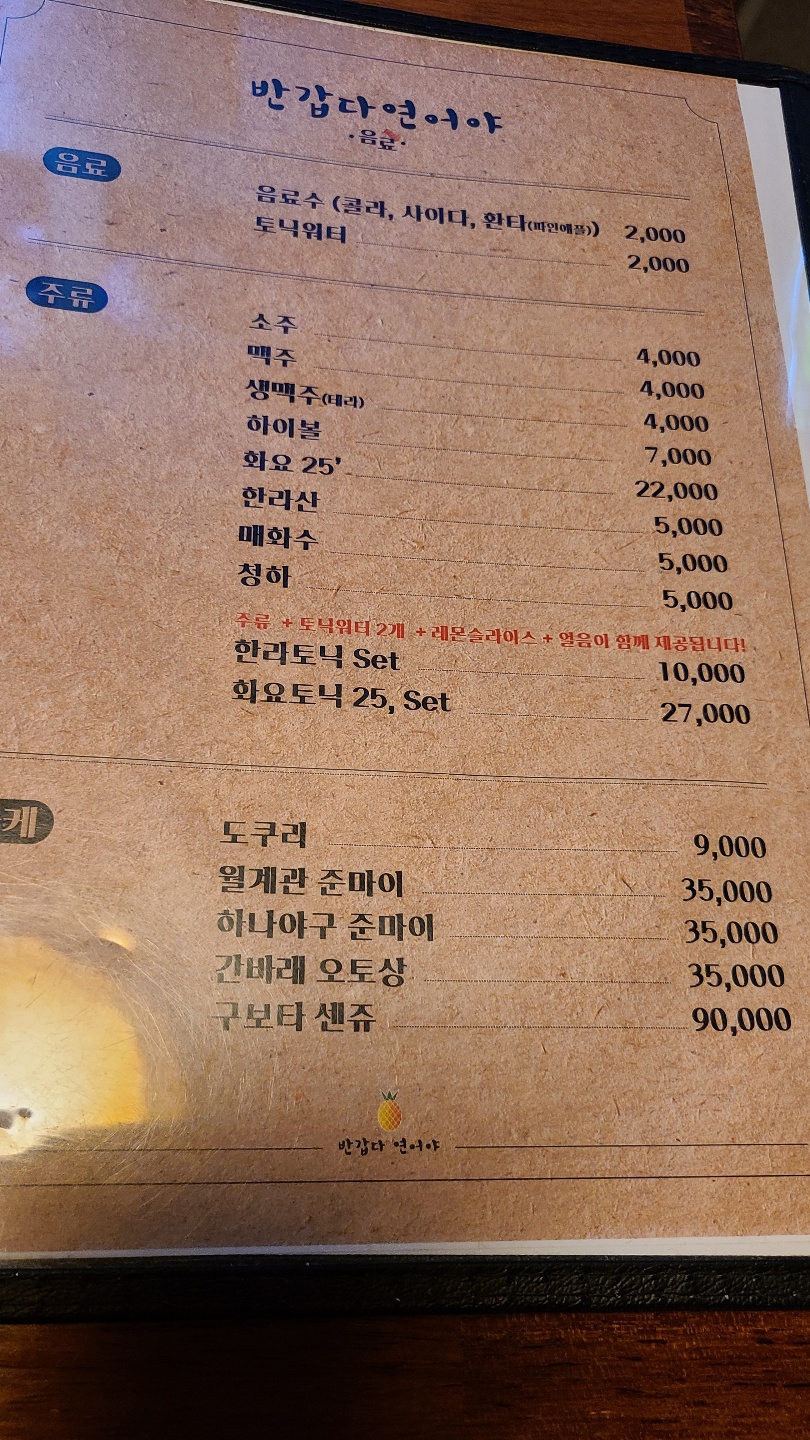 반갑다연어야
·음료·
음료
음료수 (콜라, 사이다, 환타(파인애플)) 2,000
토닉워터 2,000
주류
소주 4,000
맥주 4,000
생맥주(테라) 4,000
하이볼 7,000
화요 25' 22,000
한라산 5,000
매화수 5,000
청하 5,000
주류 + 토닉워터 2개 + 레몬슬라이스 + 얼음이 함께 제공됩니다!
한라토닉 Set 10,000
화요토닉 25, Set 27,000
케
도쿠리 9,000
월계관 준마이 35,000
하나야구 준마이 35,000
간바레 오토상 35,000
구보타 센쥬 90,000
반갑다 연어야